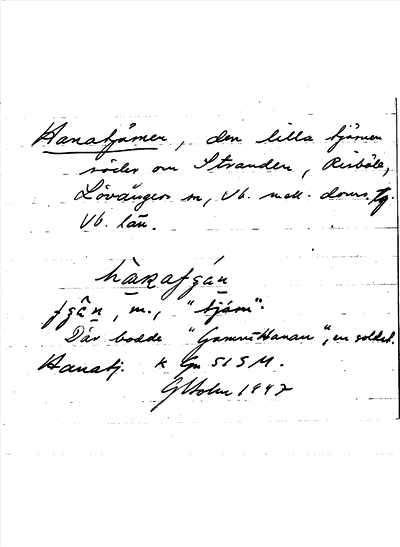 Hanatjärnen, den lilla tjärnen
söder om Stranden, Risböle,
Lövångers sn, Vb. mell. doms. tg.
Vb. län.
hànafgán
fgân, m., "tjärn".
Där bodde "Gammhanan", en soldat.
Hanatj. k Gn 51 S M.
GHolm 1942